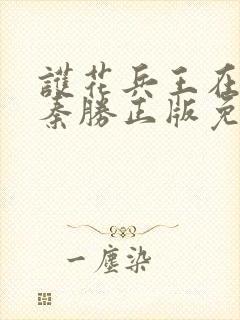 護花兵王在
秦勝正版免
一塵染